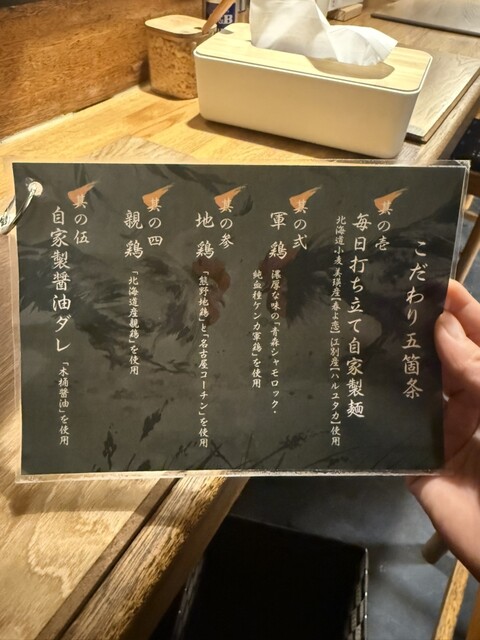 こだわり五箇条
其の壱
毎日打ち立て自家製麺
北海道小麦 美瑛産【春よ恋】江別産【ハルユタカ】使用
其の弐
軍鶏
濃厚な味の「青森シャモロック・
純血種ケンカ軍鶏」を使用
其の参
地鶏
「熊野地鶏」と「名古屋コーチン」を使用
其の四
親鶏
「北海道産親鶏」を使用
其の伍
自家製醤油ダレ
「木桶醤油」を使用